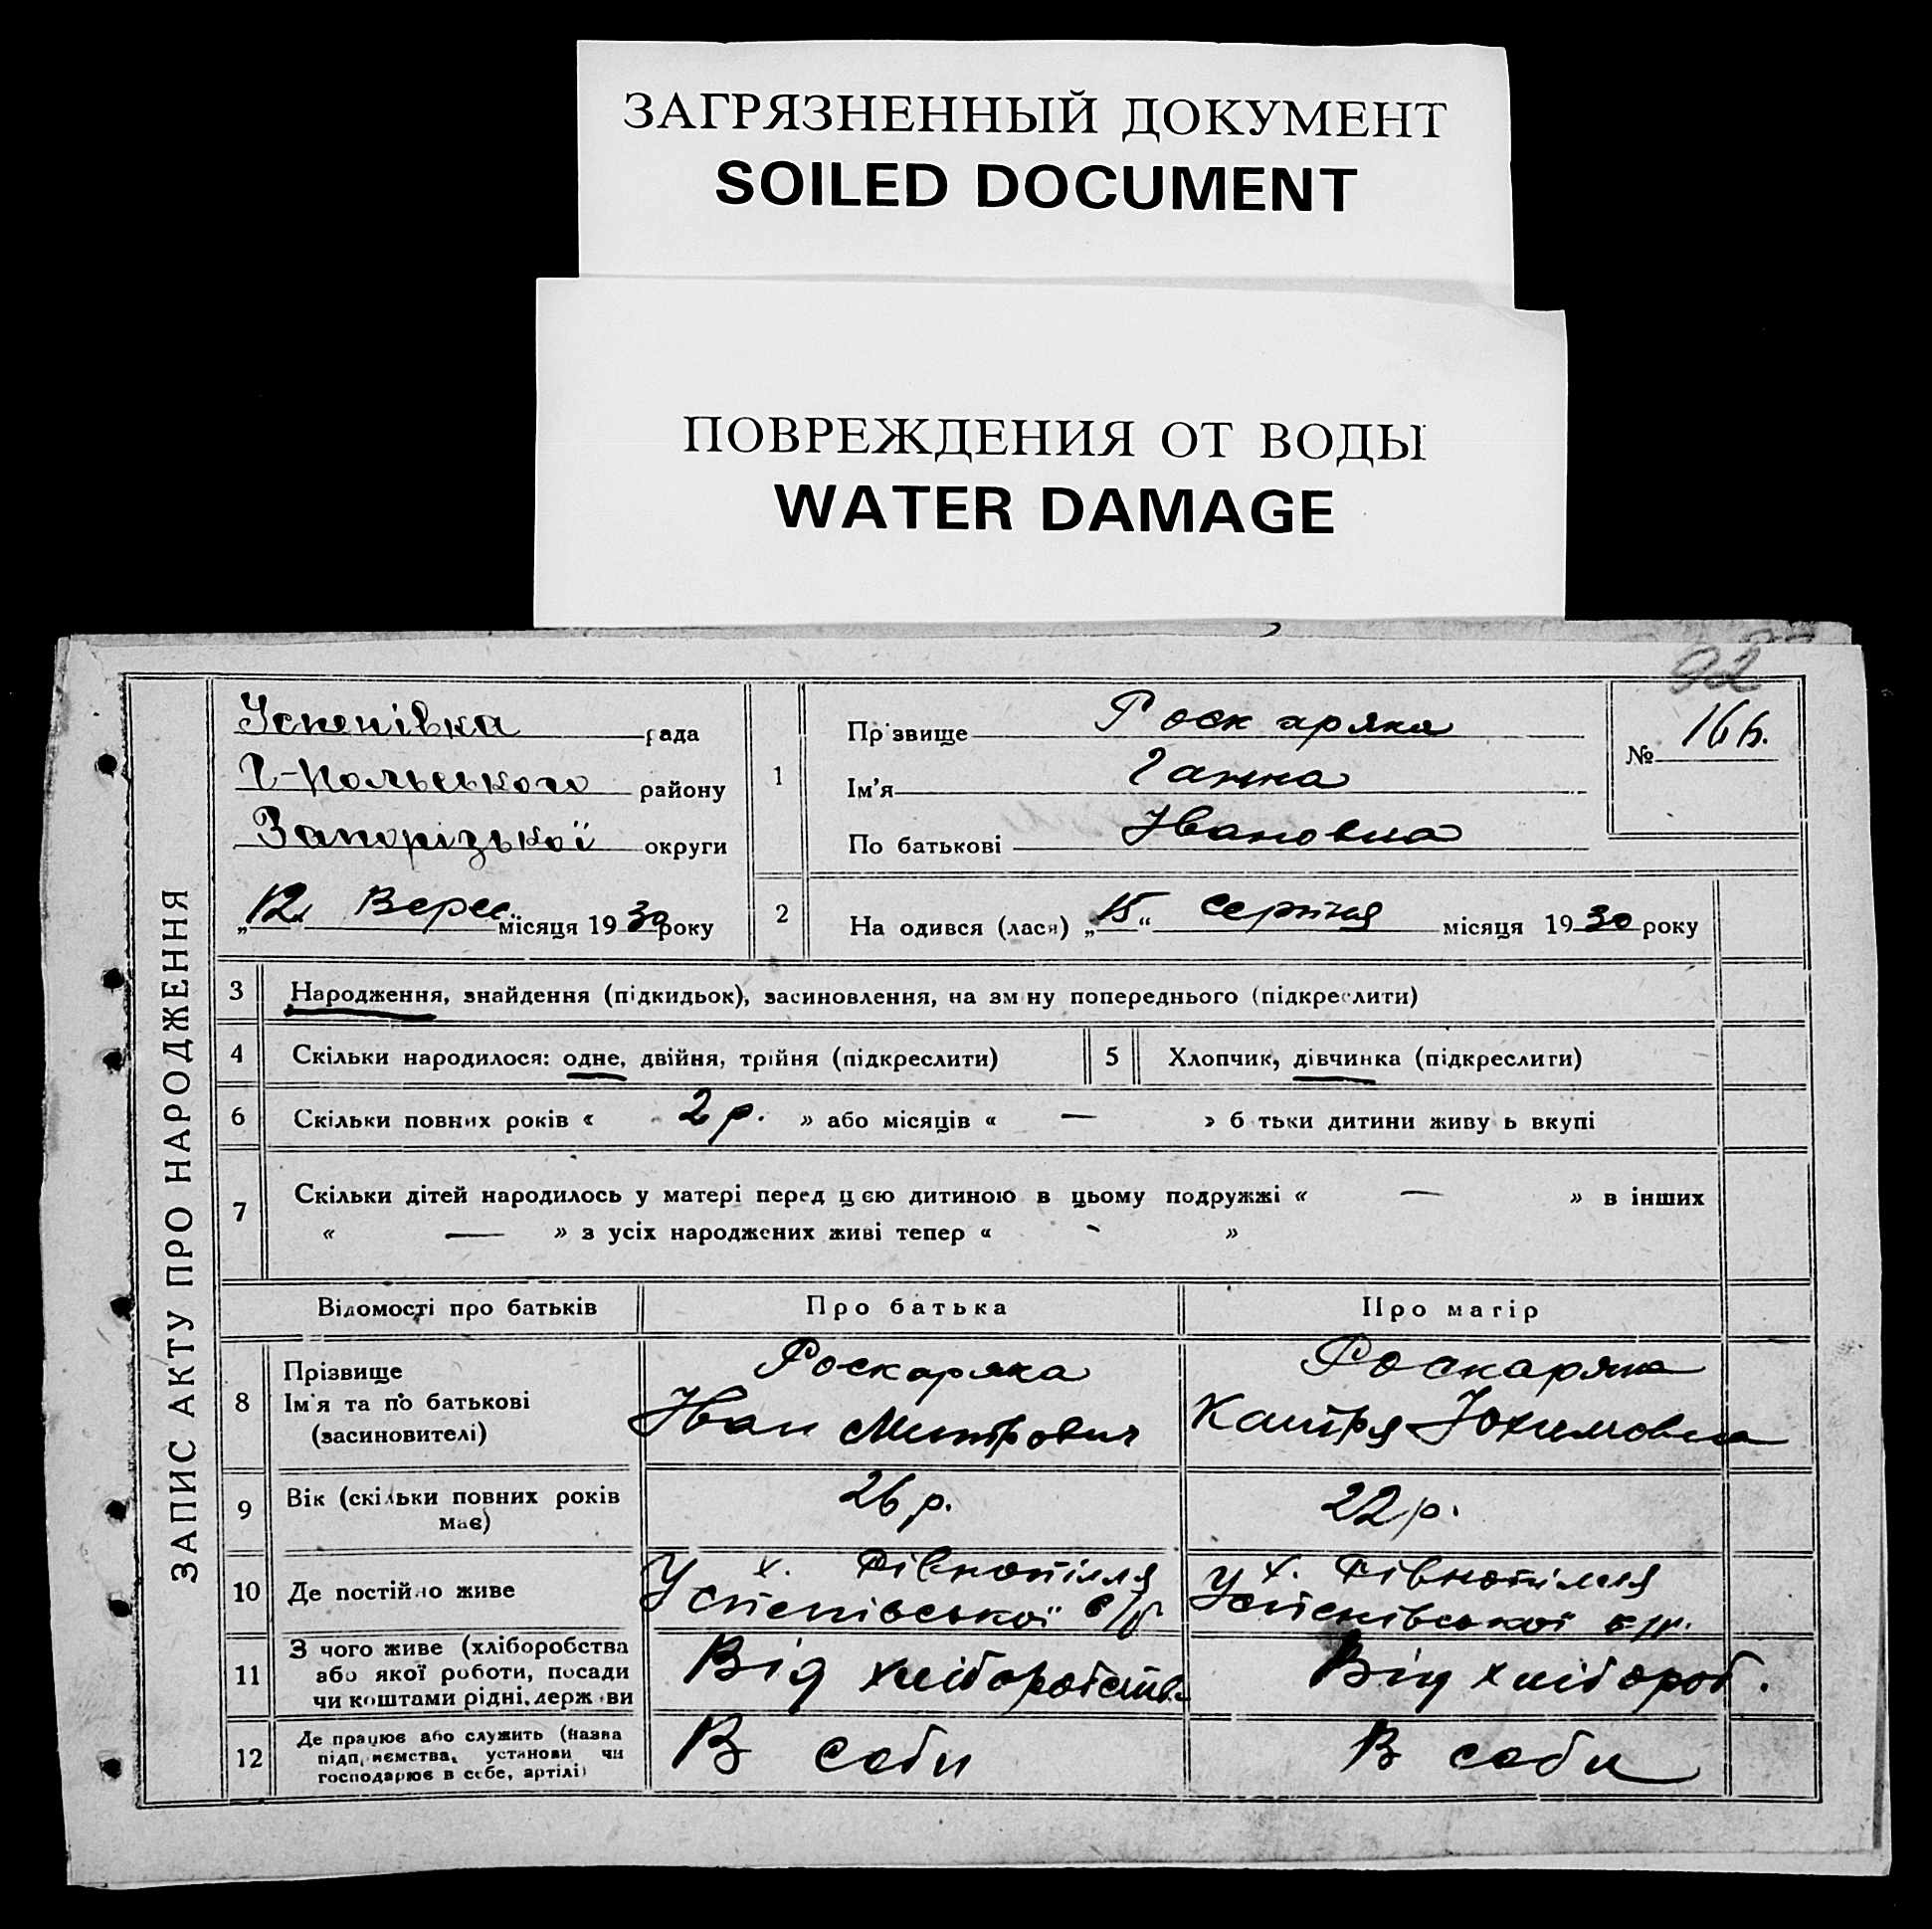 ЗАГРЯЗНЕННЫЙ ДОКУМЕНТ
SOILED DOCUMENT
ПОВРЕЖДЕНИЯ ОТ ВОДЫ
WATER DAMAGE
92
ЗАПИС АКТУ ПРО НАРОДЖЕННЯ
Успенівка рада
Г-Польського району
Запорізької округи
„12 Верес. місяця 1930 року
1
Прізвище Роскаряка
Ім'я Ганна
По батькові Івановна
№ 166.
2 На одився (лася) „15“ серпня місяця 1930 року
3 Народження, знайдення (підкидьок), засиновлення, на зміну попереднього (підкреслити)
4 Скільки народилося: одне, двійня, трійня (підкреслити) 5 Хлопчик, дівчинка (підкреслити)
6 Скільки повних років « 2 р. » або місяців « — » б тьки дитини живу ь вкупі
7 Скільки дітей народилось у матері перед цією дитиною в цьому подружжі « — » в інших
« — » з усіх народжених живі тепер « - »
Відомості про батьків Про батька Про матір
8 Прізвище Роскаряка Роскаряка
Ім'я та по батькові Іван Митрович Катря Юхимовна
(засиновителі)
9 Вік (скільки повних років має) 26 р. 22 р.
10 Де постійно живе х. Рівнопілля х. Рівнопілля
Успенівської с/р Успенівської с/р.
11 З чого живе (хліборобства
або якої роботи, посади Від хліборобства Від хлібороб.
чи коштами рідні, держ ви
12 Де працює або служить (назва
підприємства, установи чи В соби В соби
господарює в себе, артілі)